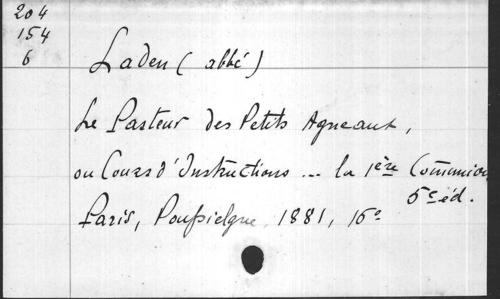 204
154
6
Laden (abbé)
Le Pasteur des Petits Agneaux,
ou Cours d'Instructions ... la 1ère Communion
5e éd.
Paris, Poussielgue, 1881, 16°